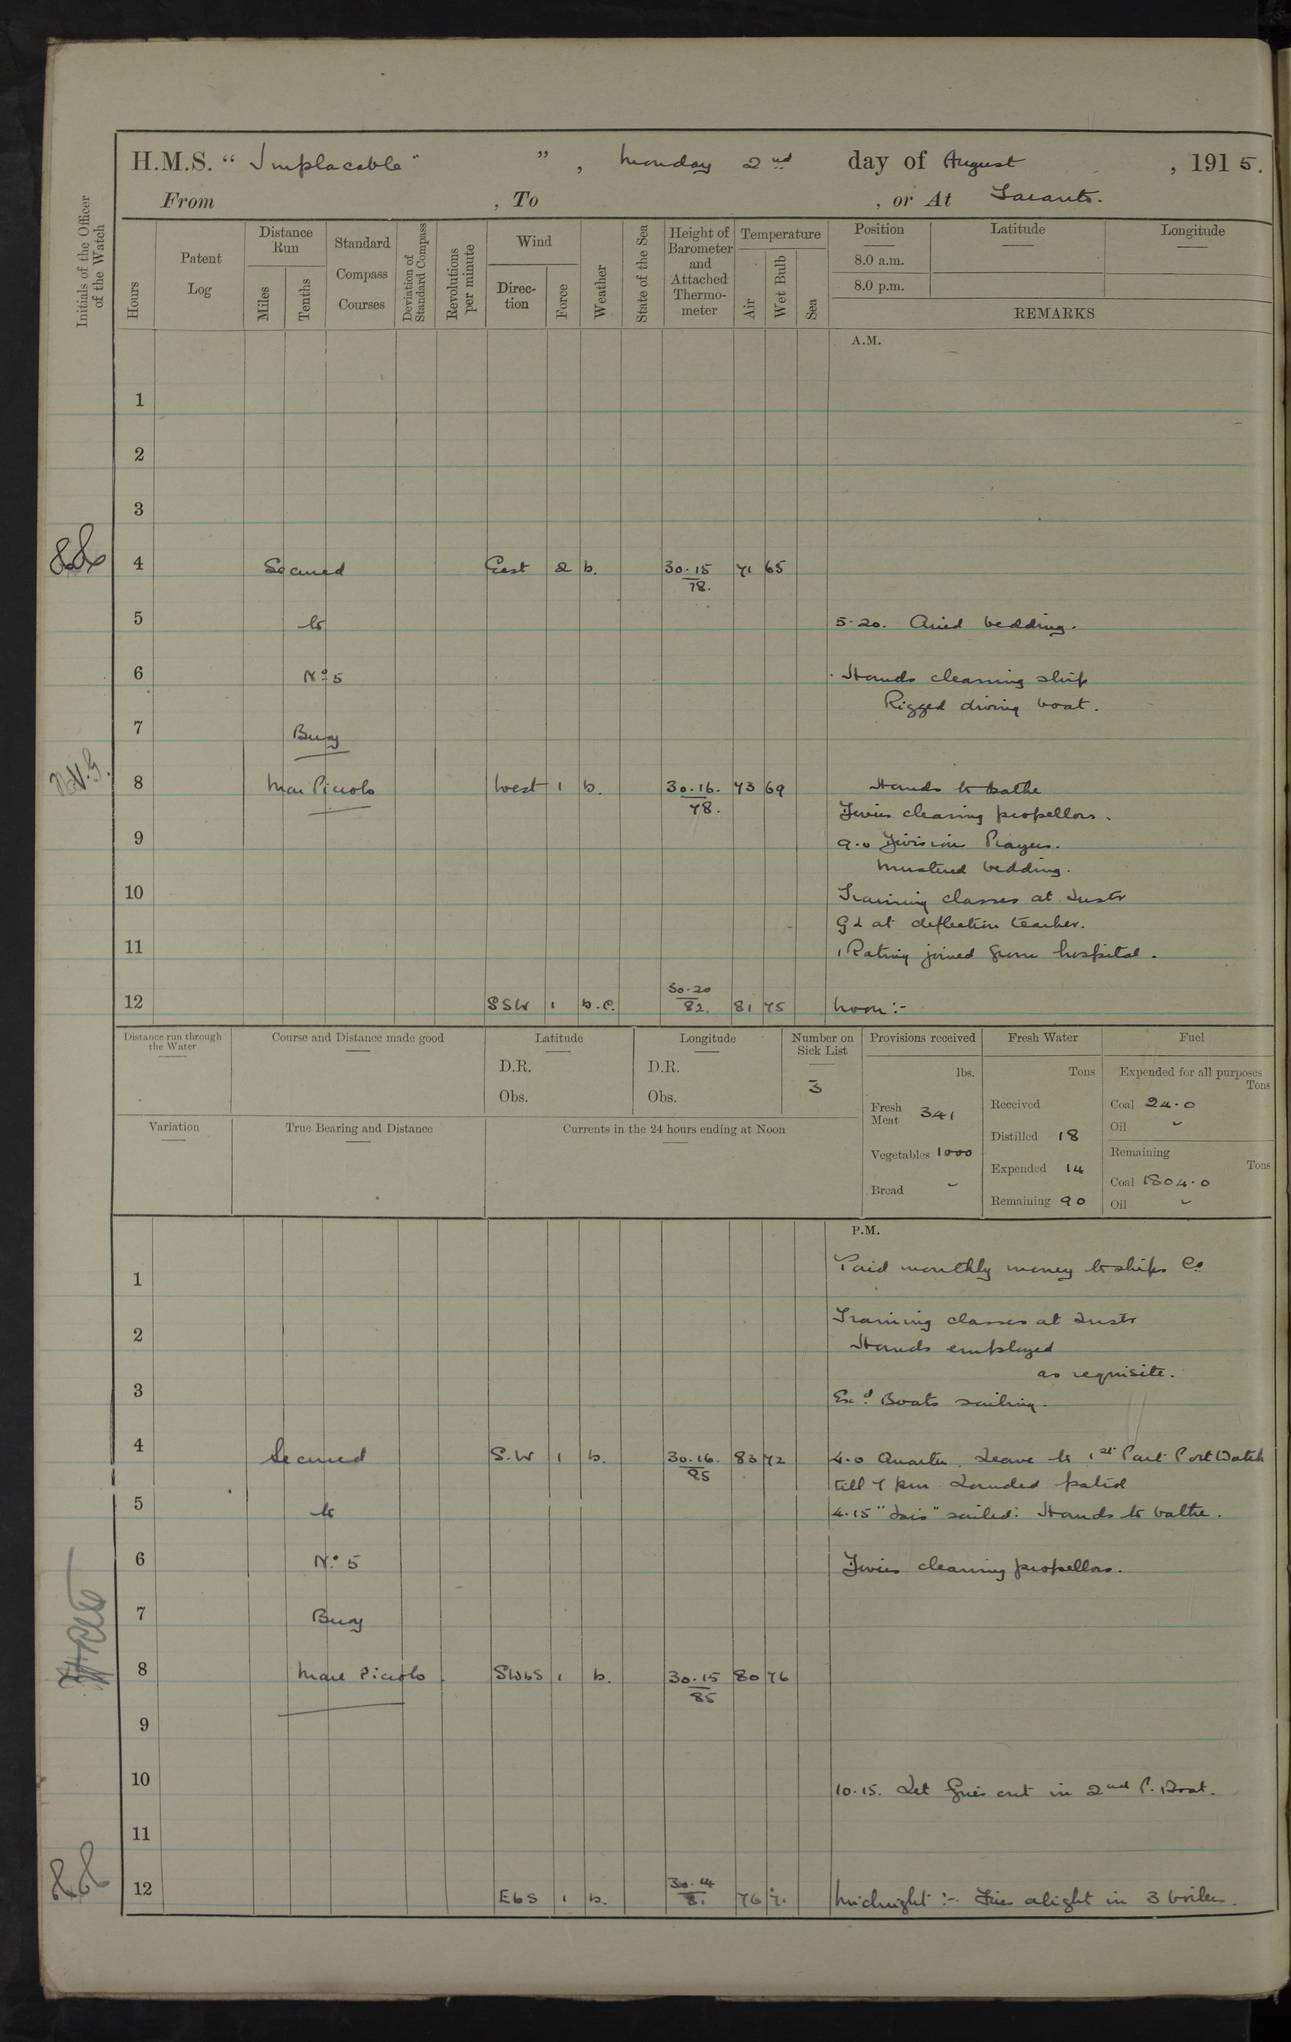 H.M.S. "Implacable" ", Monday 2nd day of August, 1915.
From , To , or At Taranto.
Initials of the Officer of the Watch
Hours
Patent Log
Distance Run
Miles
Tenths
Standard Compass Courses
Deviation of Standard Compass
Revolutions per minute
Wind
Direction
Force
Weather
State of the Sea
Height of Barometer and Attached Thermometer
Temperature
Air
Wet Bulb
Sea
Position
8.0 a.m.
8.0 p.m.
Latitude
Longitude
REMARKS
A.M.
1
2
3
4 Secured East 2 b. 30.15 78. 71 65
5 to 5.20. Aired bedding.
6 No 5 Hands cleaning ship
Rigged diving boat.
7 Buoy
8 Mar Piccolo West 1 b. 30.16. 78. 73 69 Hands to bathe
Divers cleaning propellors.
9 9.0 Division Prayers.
Mustered bedding.
10 Training classes at Instr
G.L at deflection teacher.
11 1 Rating joined from hospital.
12 SSW 1 b.c. 30.20 82. 81 75 Noon:-
Distance run through the Water
Course and Distance made good
Latitude
D.R.
Obs.
Longitude
D.R.
Obs.
Number on Sick List
3
Provisions received
lbs.
Fresh Meat 341
Vegetables 1000
Bread -
Fresh Water
Tons
Received
Distilled 18
Expended 14
Remaining 90
Fuel
Expended for all purposes
Tons
Coal 24.0
Oil -
Remaining
Tons
Coal 1804.0
Oil -
Variation
True Bearing and Distance
Currents in the 24 hours ending at Noon
P.M.
1 Paid monthly money to ships Co
2 Training classes at Instr
Hands employed
as requisite.
3 Exd Boats sailing.
4 Secured S.W 1 b. 30.16. 85 83 72 4.0 Quarters. Leave to 1st Part Port Watch
till 7 pm Landed patrol
5 to 4.15 "Isis" sailed: Hands to bathe.
6 No 5 Divers cleaning propellors.
7 Buoy
8 Mare Piccolo. SWbS 1 b. 30.15 85 80 76
9
10 10.15. Let fires out in 2nd P. Boat.
11
12 EbS 1 b. 30.14 81 76 Midnight:- Fires alight in 3 boilers